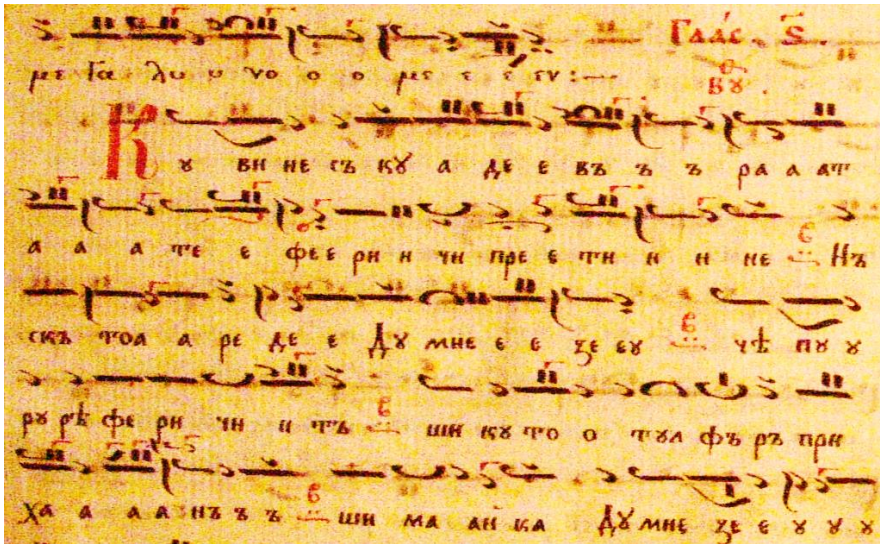 ме га лу у но о о ме е е еу :— Глас ѕ
ву
К у ви не съ ку а де е въ ъ ъ ра а ат
а а а те е фе е ри и чи пре е ти и и не Нъ
скъ тоа а ре де е Ду мне е е ѕе еу чѣ пу у
ру рѣ фе ри чи и тъ ши ку то о тул фъ ръ при
ха а а а нъ ъ ъ ши ма ай ка Ду мне ѕе е у у у